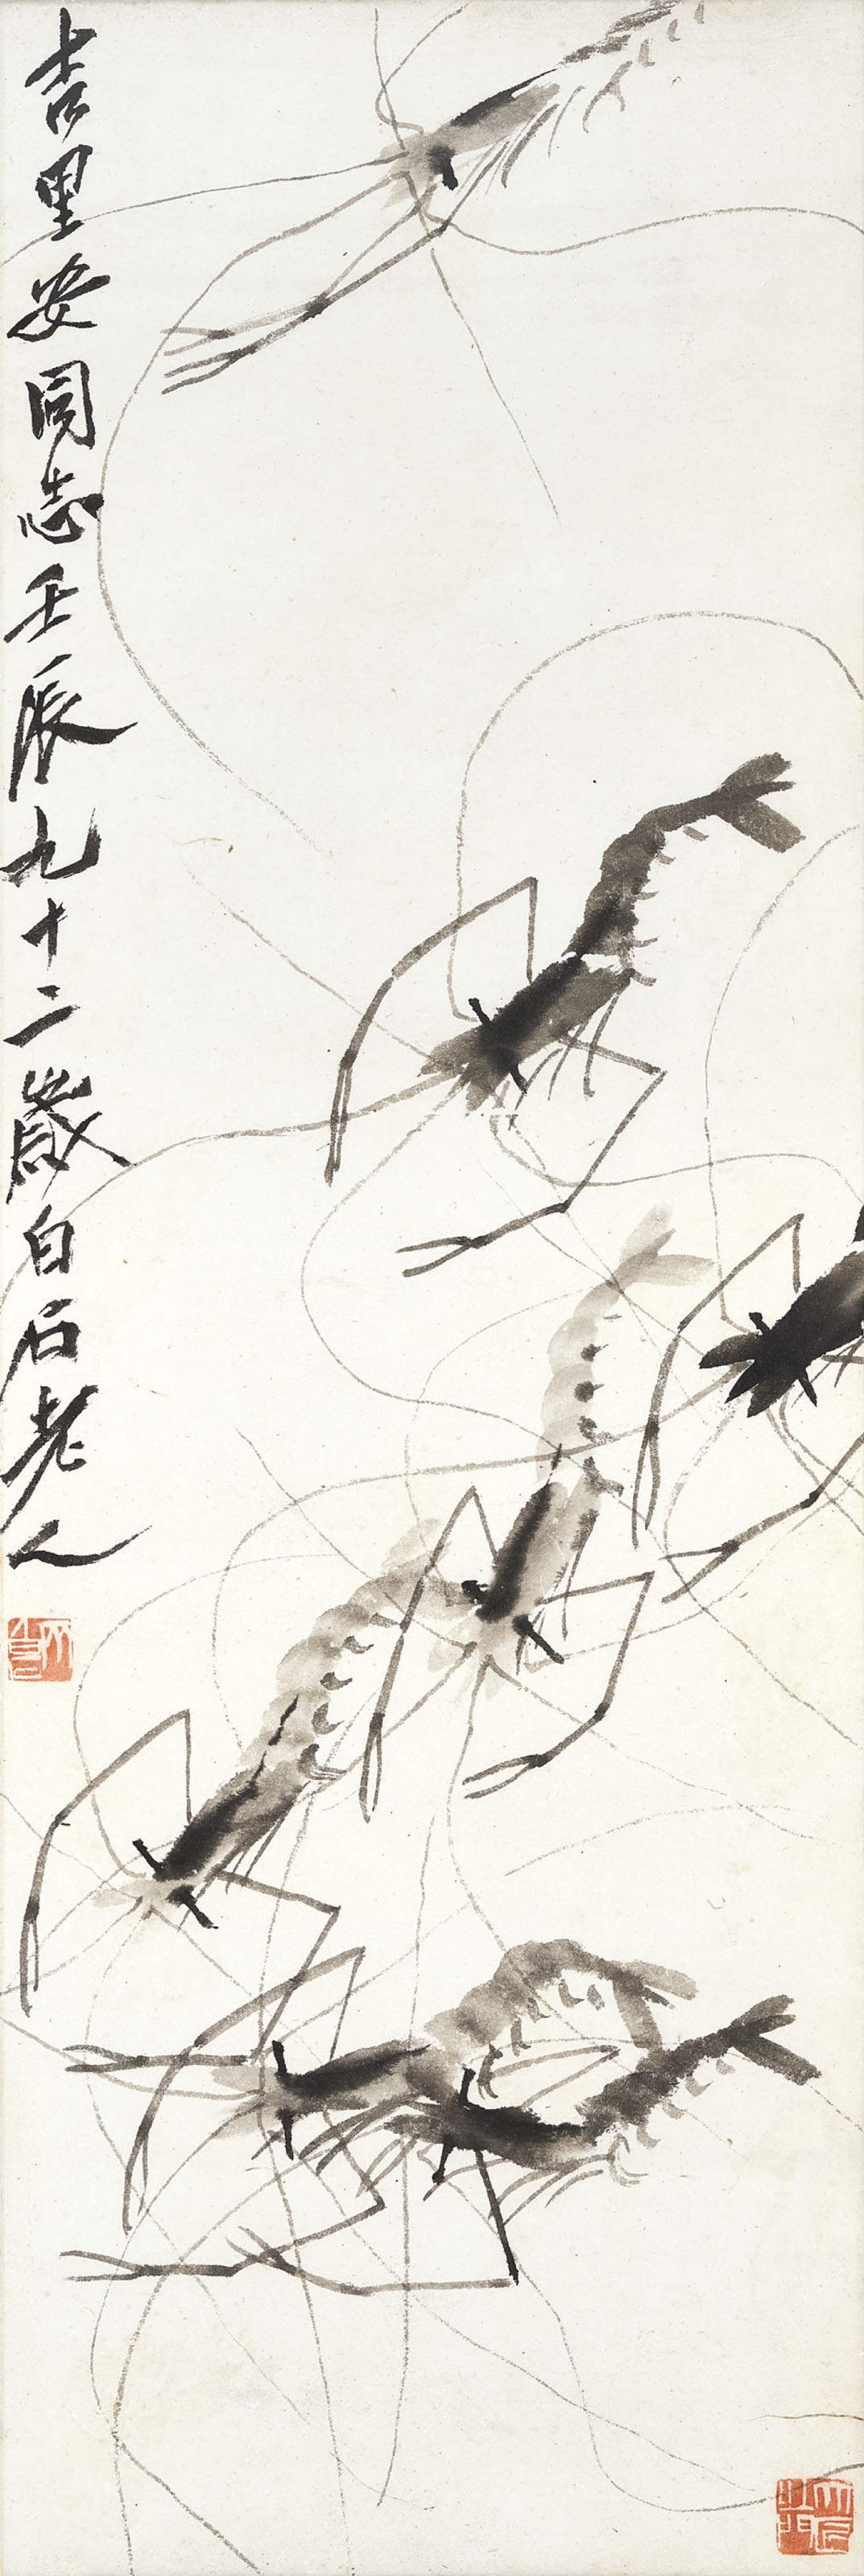 吉里安同志壬辰九十二歲白石老人